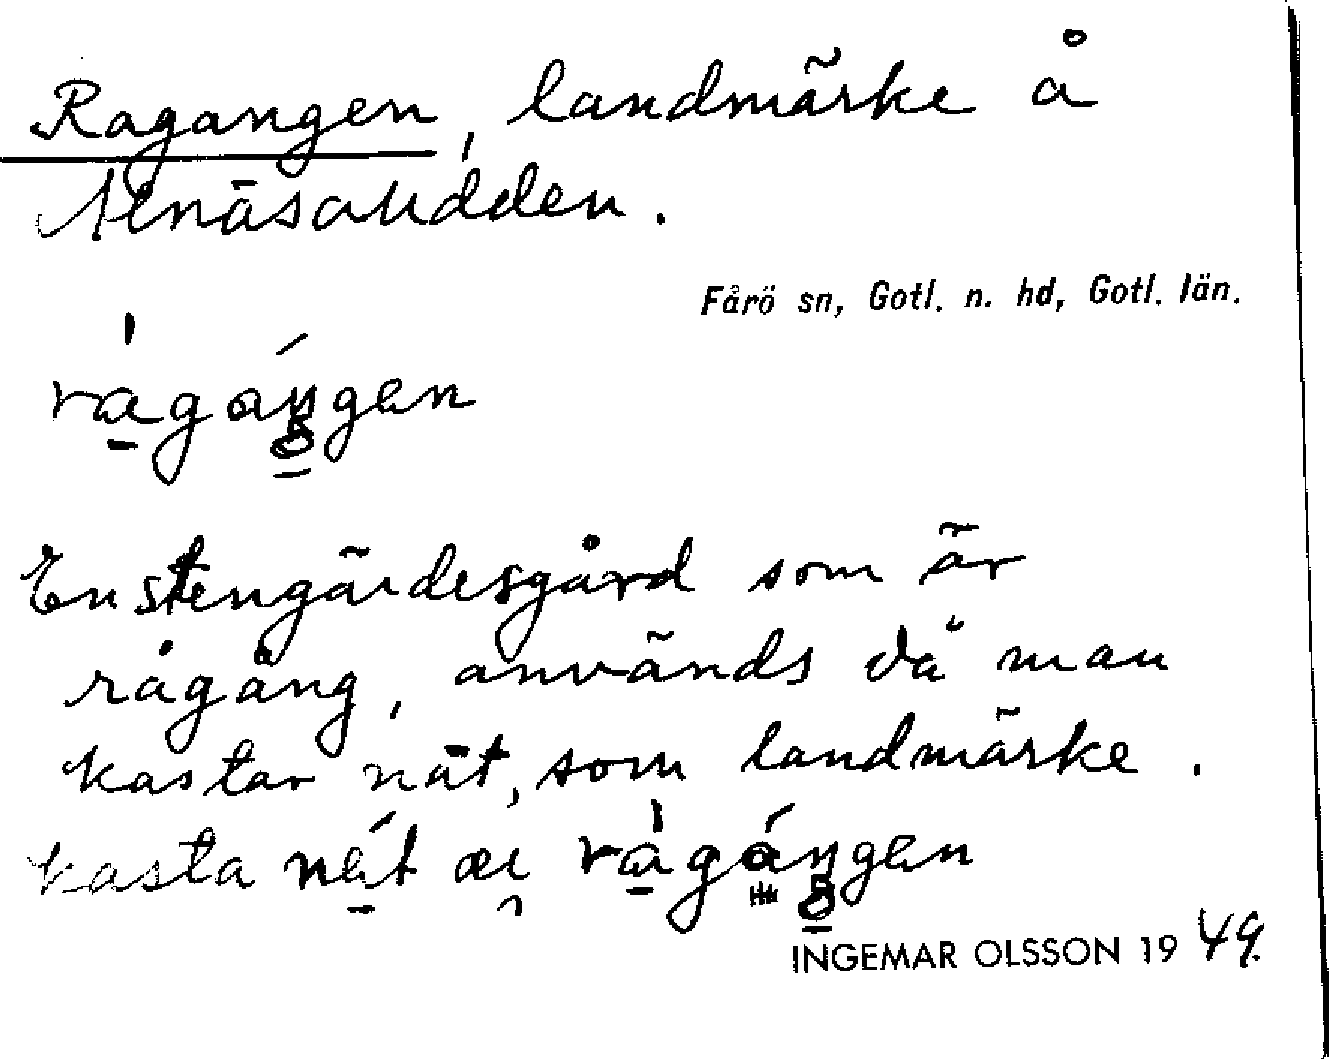 Ragangen, landmärke å
Alnäsaudden.
Fårö sn, Gotl. n. hd, Gotl. län.
rágáŋgen
En stengärdesgård som är
rågång, används då man
kastar nät, som landmärke.
kasta nät æi rágáŋgen
INGEMAR OLSSON 1949.